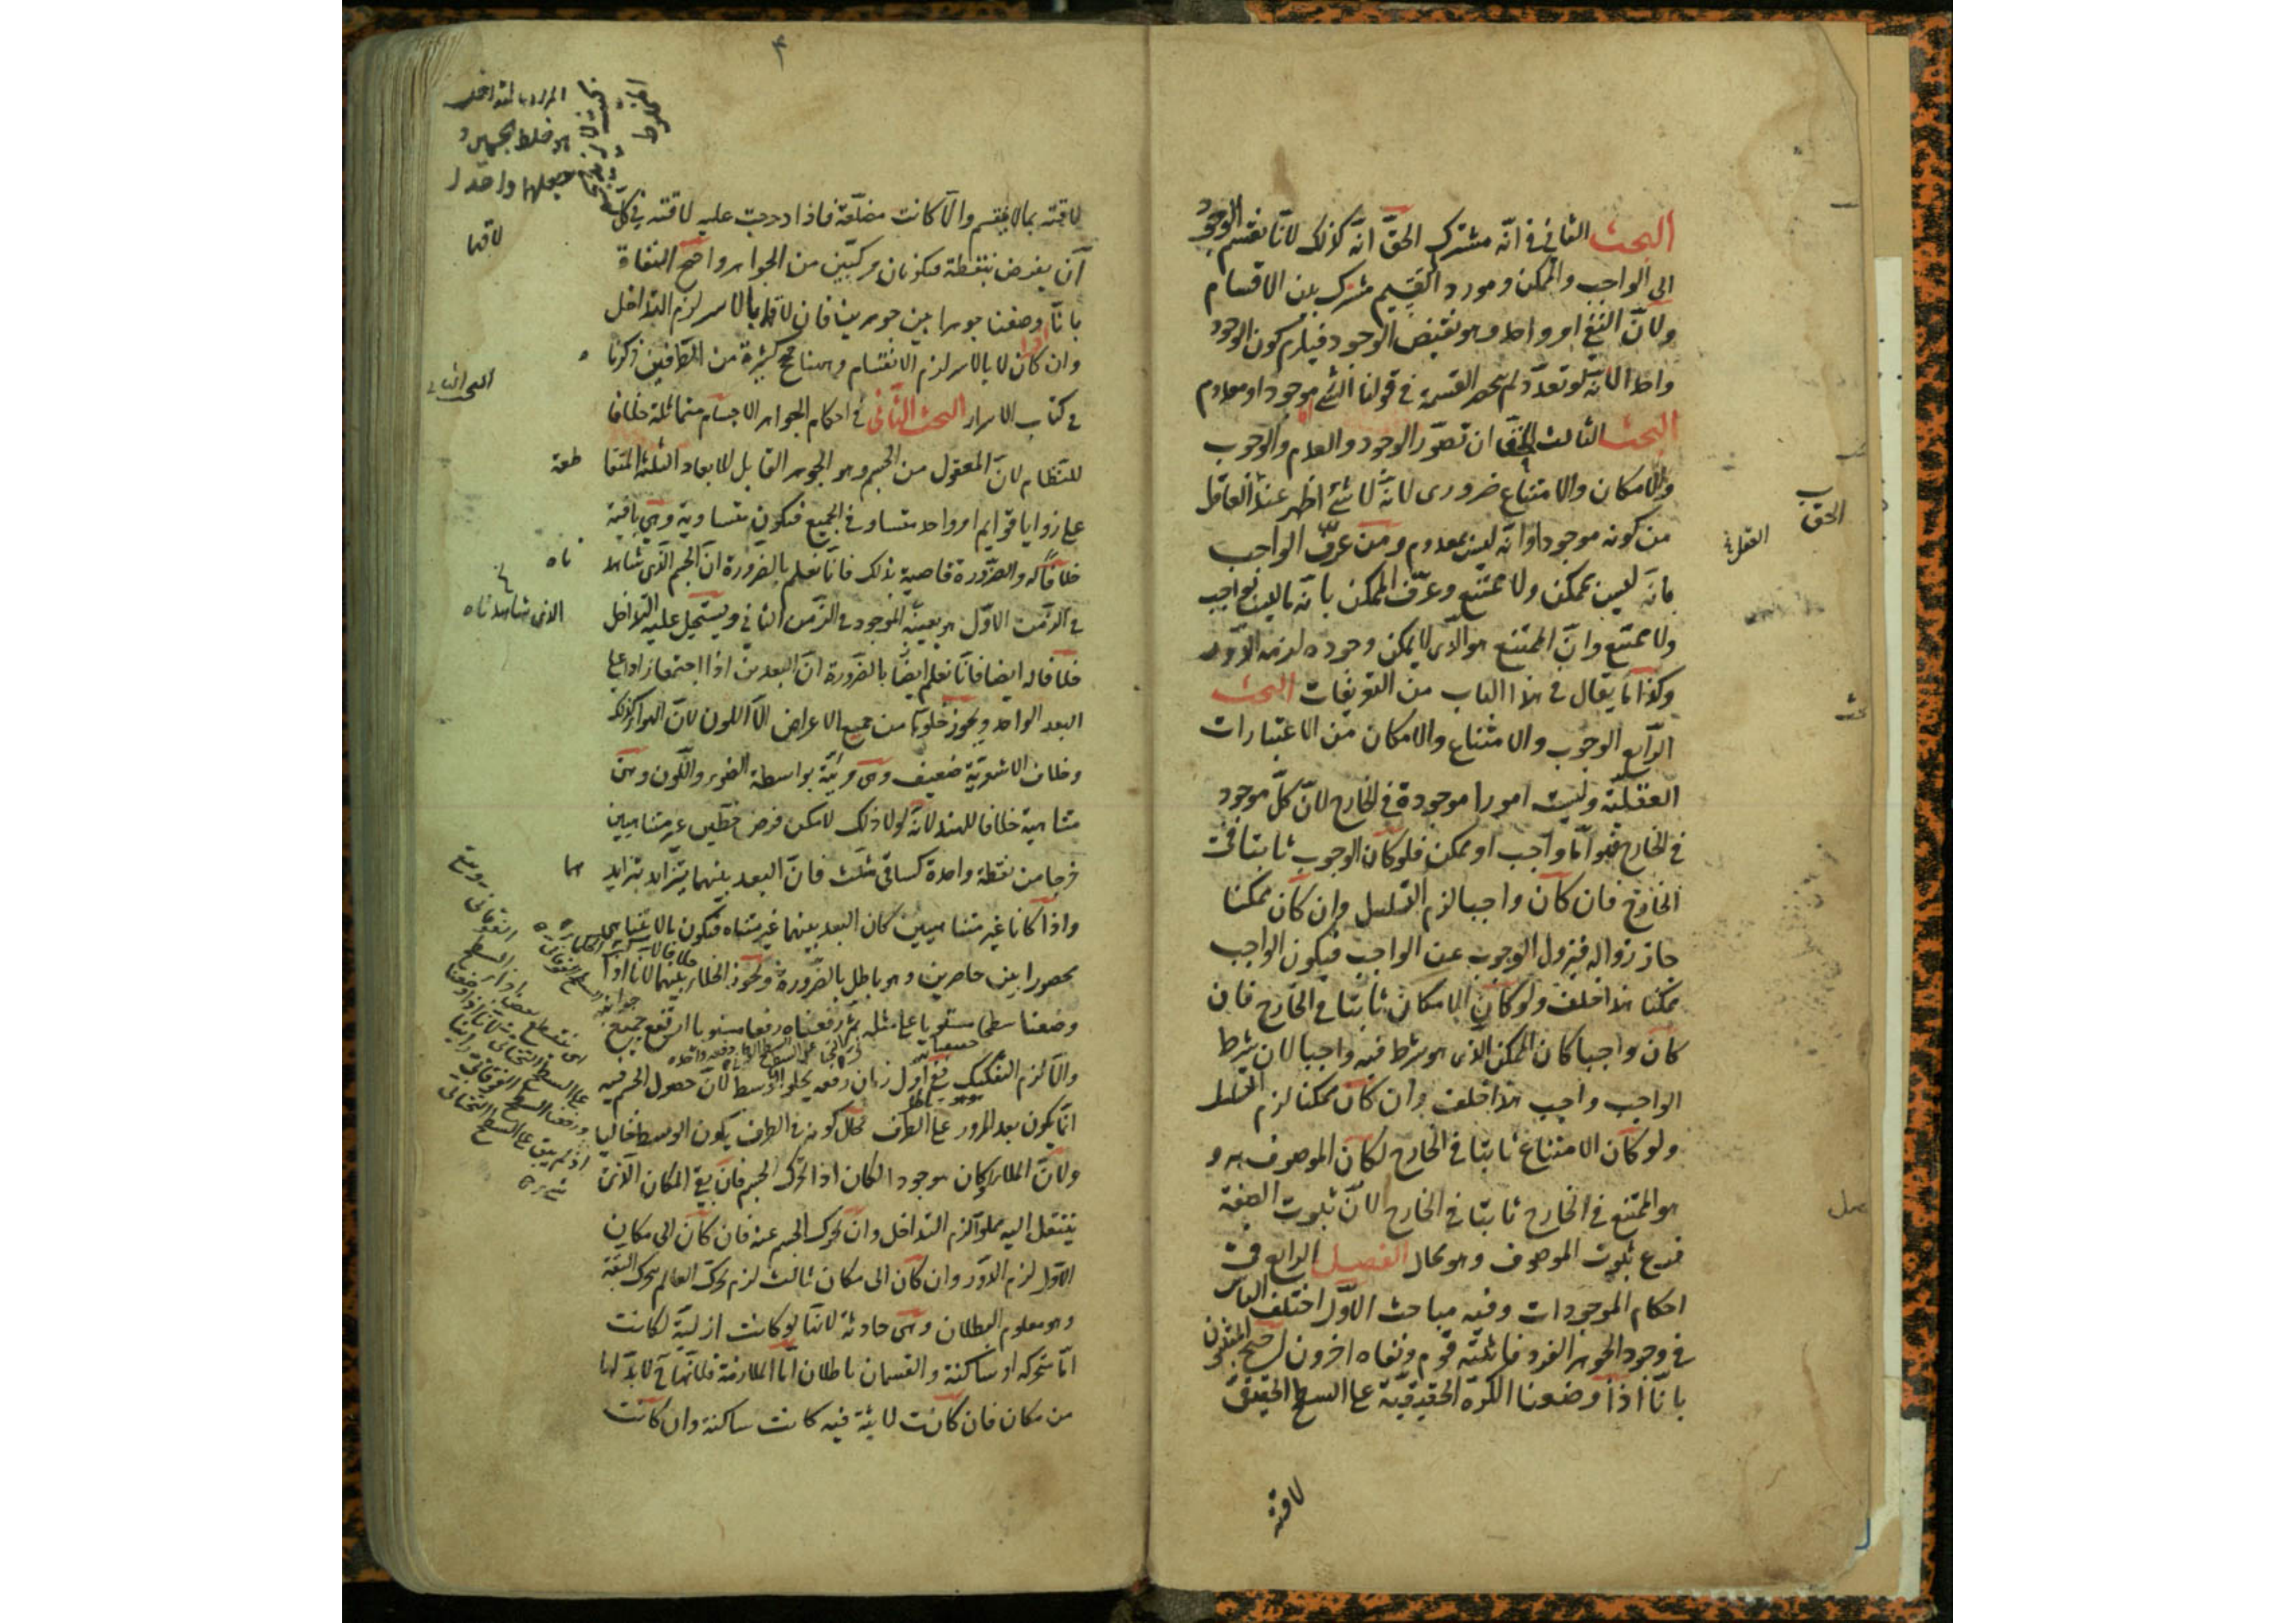 البحث الثاني في انّه مشترك الحقّ انّه كذلك لانّا نقسم الوجود
الى الواجب والممكن ومورد التقسيم مشترك بين الاقسام
ولانّ النفي امر واحد وهو نقيض الوجود فيلزم كون الوجود
واحدا لانّه لو تعدّد لم ينحصر القسمة في قولنا الشئ موجود او معدوم
البحث الثالث الحق ان تصوّر الوجود والعدم والوجوب
والامكان والامتناع ضرورى لانّه لا شئ اظهر عند العاقل
من كونه موجودا وانّه ليس بمعدوم ومن عرّف الواجب
بانّه ليس بممكن ولا ممتنع وعرّف الممكن بانّه ما ليس بواجب
ولا ممتنع وانّ الممتنع هو الذى لا يمكن وجوده لزمه الدّور
وكذا ما يقال في هذا الباب من التعريفات البحث
الرّابع الوجوب والامتناع والامكان من الاعتبارات
العقليّة وليست امورا موجودة في الخارج لانّ كلّ موجود
في الخارج فهو امّا واجب او ممكن فلو كان الوجوب ثابتا في
الخارج فان كان واجبا لزم التسلسل وان كان ممكنا
جاز زواله فيزول الوجوب عن الواجب فيكون الواجب
ممكنا هذا خلف ولو كان الامكان ثابتا في الخارج فان
كان واجبا كان الممكن الذى هو شرط فيه واجبا لان شرط
الواجب واجب هذا خلف وان كان ممكنا لزم التسلسل
ولو كان الامتناع ثابتا في الخارج لكان الموصوف به و
هو الممتنع في الخارج ثابتا في الخارج لانّ ثبوت الصفة
فرع ثبوت الموصوف وهو محال الفصل الرابع في
احكام الموجودات وفيه مباحث الاوّل اختلف الناس
في وجود الجوهر الفرد فاثبته قوم ونفاه اخرون احتج المثبتون
بانّا اذا وضعنا الكرة الحقيقيّة على السطح الحقيقى
لاقته
الحق
العقل
۴
لاقته بما لا ينقسم والّا كانت مضلّعة فاذا دحرجت عليه لاقته في كلّ
آن بفرض بنقطة فيكونان مركبين من الجواهر واحتج النفاة
بانّا اذا وضعنا جوهرا بين جوهرين فان لاقاهما بالاسر لزم التداخل
وان كان لا بالاسر لزم الانقسام وهنا حجج كثيرة من الطرفين ذكرنا
في كتاب الاسرار البحث الثّاني في احكام الجواهر الاجسام متماثلة خلافا
للنظّام لانّ المعقول من الجسم وهو الجوهر القابل للابعاد الثلثة المتقا
طعة
على زوايا قوايم امر واحد متساو في الجميع فيكون متساوية وهي باقية
خلافا له والضّرورة قاضية بذلك فانّا نعلم بالضّرورة انّ الجسم الّذى شاهد
ناه
في الزّمن الاوّل هو بعينه الموجود في الزّمن الثاني ويستحيل عليه التداخل
خلافا له ايضا فانّا نعلم ايضا بالضّرورة انّ البعدين اذا اجتمعا زادا على
البعد الواحد ويجوز خلوّها من جميع الاعراض الّا اللون لانّ الهواء كذلك
وخلاف الاشعريّة ضعيف وهى مرئيّة بواسطة الضوء واللّون وهى
متناهية خلافا للهند لانّه لولا ذلك لامكن فرض خطّين غير متناهيين
خرجا من نقطة واحدة كساقى مثلّث فانّ البعد بينهما يتزايد بتزايد
هما
واذا كانا غير متناهيين كان البعد بينهما غير متناه فيكون ما لا يتناهى
محصورا بين حاصرين وهو باطل بالضّرورة ويجوز الخلاء بينهما لانا اذا
وضعنا سطحا مستويا على مثله ثمّ رفعناه رفعا مستويا ارتفع جميع
والّا لزم التفكيك ففي اوّل زمان رفعه يخلو الوسط لانّ حصول الجسم فيه
انّما يكون بعد المرور على الطرف فحال كونه في الطرف يكون الوسط خاليا
ولانّ الملاء لو كان موجودا لكان اذا تحرّك الجسم فان بقى المكان الّذى
ينتقل اليه مملوّا لزم التداخل وان تحرّك الجسم عنه فان كان الى مكان
الاوّل لزم الدّور وان كان الى مكان ثالث لزم تحرّك العالم بحركة البقّة
وهو معلوم البطلان وهى حادثة لانّها لو كانت ازليّة لكانت
امّا متحركه او ساكنة والقسمان باطلان امّا الملازمة فلانّها ح لا بدّ لها
من مكان فان كانت لابثة فيه كانت ساكنة وان كانت
المراد بالتداخل
هو خلط الجسمين و
جعلهما واحدا
لاقهما
البحث الثاني
الذى شاهدناه